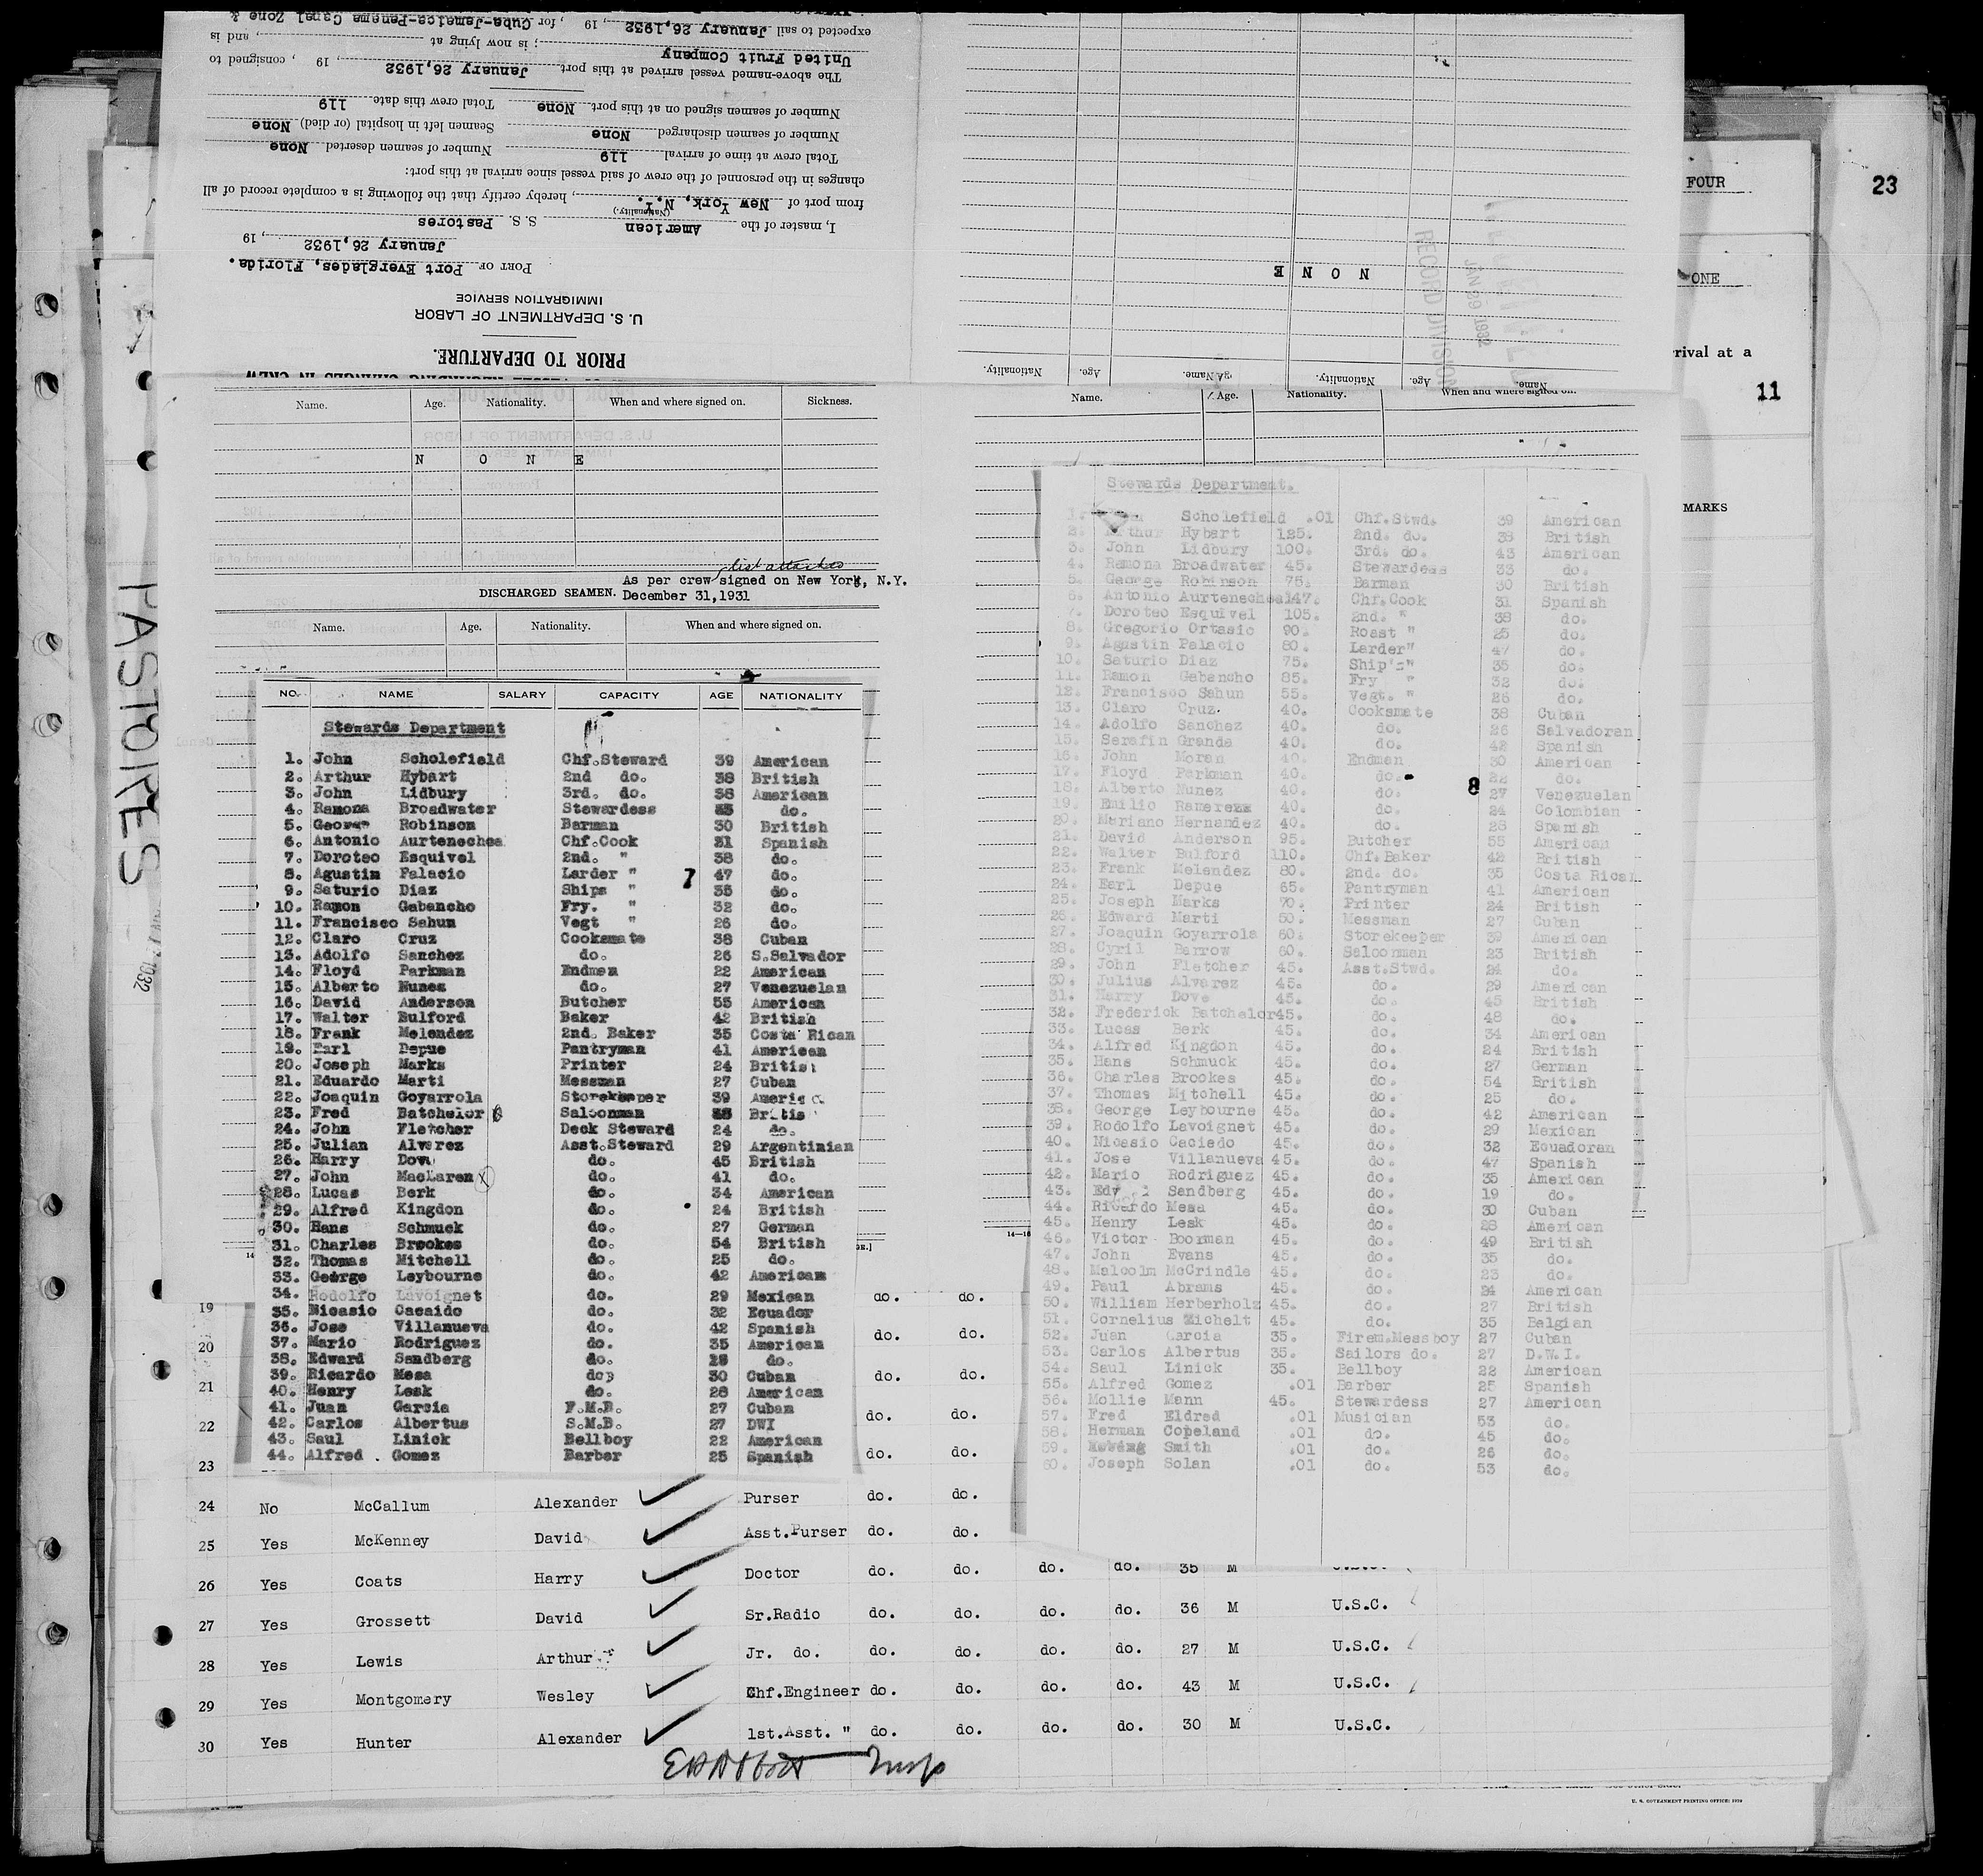 expected to sail January 26,1932, 19 , for Cuba-Jamaica-Panama Canal Zone &
United Fruit Company ; is now lying at , and is
The above-named vessel arrived at this port January 26,1932, 19 , consigned to
Number of seamen signed on at this port None Total crew this date 119
Number of seamen discharged None Seamen left in hospital (or died) None
Total crew at time of arrival 119 Number of seamen deserted None
changes in the personnel of the crew of said vessel since arrival at this port:
from port of New York, N.Y. , hereby certify that the following is a complete record of all
(Nationality.)
I, master of the American S. S. Pastores
January 26,1932, 19
PORT OF Port Everglades, Florida.
IMMIGRATION SERVICE
U. S. DEPARTMENT OF LABOR
PRIOR TO DEPARTURE.
N O N E
RECORD DIVISION
JAN 29 1932
Name. Age. Nationality. Name. Age. Nationality.
FOUR
23
ONE
rival at a
11
MARKS
PASTORES
1932
Name. Age. Nationality. When and where signed on. Sickness.
N O N E
list attached
As per crew signed on New York, N.Y.
DISCHARGED SEAMEN. December 31,1931
Name. Age. Nationality. When and where signed on.
Name. Age. Nationality. When and where signed on.
NO. NAME SALARY CAPACITY AGE NATIONALITY
Stewards Department
1. John Scholefield Chf.Steward 39 American
2. Arthur Hybart 2nd do. 38 British
3. John Lidbury 3rd. do. 38 American
4. Ramona Broadwater Stewardess do.
5. George Robinson Barman 30 British
6. Antonio Aurtenechea Chf.Cook 31 Spanish
7. Doroteo Esquivel 2nd. " 38 do.
8. Agustin Palacio Larder " 7 47 do.
9. Saturio Diaz Ships " 35 do.
10. Ramon Gabancho Fry. " 32 do.
11. Francisco Sahun Vegt " 26 do.
12. Claro Cruz Cooksmate 38 Cuban
13. Adolfo Sanchez do. 26 S.Salvador
14. Floyd Parkman Endmen 22 American
15. Alberto Nunes do. 27 Venezuelan
16. David Anderson Butcher 55 American
17. Walter Bulford Baker 42 British
18. Frank Melendez 2nd. Baker 35 Costa Rican
19. Earl Depue Pantryman 41 American
20. Joseph Marks Printer 24 British
21. Eduardo Marti Messman 27 Cuban
22. Joaquin Goyarrola Storekeeper 39 Americ
23. Fred Batchelor Saloonman Britis
24. John Fletcher Deck Steward 24 do.
25. Julian Alvarez Asst.Steward 29 Argentinian
26. Harry Dove do. 45 British
27. John MacLaren X do. 41 do.
28. Lucas Berk do. 34 American
29. Alfred Kingdon do. 24 British
30. Hans Schmuck do. 27 German
31. Charles Brookes do. 54 British
32. Thomas Mitchell do. 25 do.
33. George Leybourne do. 42 American
34. Rodolfo Lavoignet do. 29 Mexican
35. Nicasio Cacaido do. 32 Ecuador
36. Jose Villanueva do. 42 Spanish
37. Mario Rodriguez do. 35 American
38. Edward Sandberg do. 19 do.
39. Ricardo Mesa do. 30 Cuban
40. Henry Lesk do. 28 American
41. Juan Garcia F.M.B. 27 Cuban
42. Carlos Albertus S.M.B. 27 DWI
43. Saul Linick Bellboy 22 American
44. Alfred . Gomez Barber 25 Spanish
Stewards Department.
1. Scholefield .01 Chf.Stwd. 39 American
2. Arthur Hybart 125. 2nd. do. 38 British
3. John Lidbury 100. 3rd. do. 43 American
4. Ramona Broadwater 45. Stewardess 33 do.
5. George Robinson 75. Barman 30 British
6. Antonio Aurtenechea147. Chf.Cook 31 Spanish
7. Doroteo Esquivel 105. 2nd. " 38 do.
8. Gregorio Ortasic 90. Roast " 25 do.
9. Agustin Palacio 80. Larder" 47 do.
10. Saturio Diaz 75. Ship's" 35 do.
11. Ramon Gabancho 85. Fry " 32 do.
12. Francisco Sahun 55. Vegt. " 26 do.
13. Claro Cruz. 40. Cooksmate 38 Cuban
14. Adolfo Sanchez 40. do. 26 Salvadoran
15. Serafin Granda 40. do. 42 Spanish
16. John Moran 40. Endman 30 American
17. Floyd Parkman 40. do. 22 do.
18. Alberto Nunez 40. do. 8 27 Venezuelan
19. Emilio Ramerezx 40. do. 24 Colombian
20. Mariano Hernandez 40. do. 28 Spanish
21. David Anderson 95. Butcher 55 American
22. Walter Bulford 110. Chf.Baker 42 British
23. Frank Melendez 80. 2nd. do. 35 Costa Rican
24. Earl Depue 65. Pantryman 41 American
25. Joseph Marks 70. Printer 24 British
26. Edward Marti 50. Messman 27 Cuban
27. Joaquin Goyarrola 60. Storekeeper 39 American
28. Cyril Barrow 60. Saloonman 23 British
29. John Fletcher 45. Asst.Stwd. 24 do.
30. Julius Alvarez 45. do. 29 American
31. Harry Dove 45. do. 45 British
32. Frederick Batchelor45. do. 48 do.
33. Lucas Berk 45. do. 34 American
34. Alfred Kingdon 45. do. 24 British
35. Hans Schmuck 45. do. 27 German
36. Charles Brookes 45. do. 54 British
37. Thomas Mitchell 45. do. 25 do.
38. George Leybourne 45. do. 42 American
39. Rodolfo Lavoignet 45. do. 29 Mexican
40. Nicasio Caciedo 45. do. 32 Ecuadoran
41. Jose Villanueva 45. do. 47 Spanish
42. Mario Rodriguez 45. do. 35 American
43. Sandberg 45. do. 19 do.
44. Ricardo Mesa 45. do. 30 Cuban
45. Henry Lesk 45. do. 28 American
46. Victor Boorman 45. do. 49 British
47. John Evans 45. do. 35 do.
48. Malcolm McCrindle 45. do. 23 do.
49. Paul Abrams 45. do. 24 American
50. William Herberholz 45. do. 27 British
51. Cornelius Zichelt 45. do. 35 Belgian
52. Juan Garcia 35. Firem.Messboy 27 Cuban
53. Carlos Albertus 35. Sailors do. 27 D.W.I.
54. Saul Linick 35. Bellboy 22 American
55. Alfred Gomez .01 Barber 25 Spanish
56. Mollie Mann 45. Stewardess 27 American
57. Fred Eldred .01 Musician 53 do.
58. Herman Copeland .01 do. 45 do.
59. Smith .01 do. 26 do.
60. Joseph Solan .01 do. 53 do.
19 do. do.
20 do. do.
21 do. do.
22 do. do.
23 do. do.
24 No McCallum Alexander Purser do. do.
25 Yes McKenney David Asst.Purser do. do.
26 Yes Coats Harry Doctor do. do. do. do. 35 M
27 Yes Grossett David Sr.Radio do. do. do. do. 36 M U.S.C.
28 Yes Lewis Arthur Jr. do. do. do. do. do. 27 M U.S.C.
29 Yes Montgomery Wesley Chf.Engineer do. do. do. do. 43 M U.S.C.
30 Yes Hunter Alexander 1st.Asst. " do. do. do. do. 30 M U.S.C.
U. S. GOVERNMENT PRINTING OFFICE: 1929